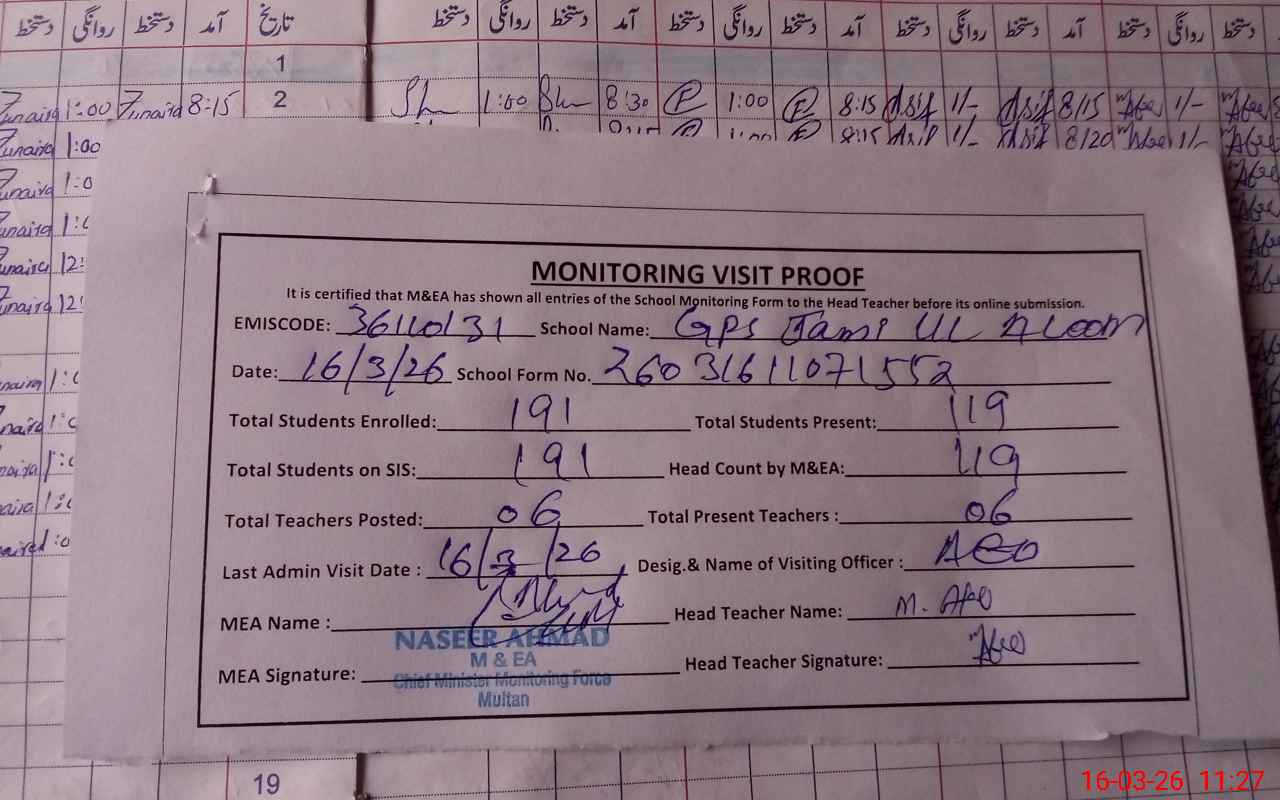 دستخط روانگی دستخط آمد تاریخ دستخط روانگی دستخط آمد دستخط روانگی دستخط آمد دستخط روانگی دستخط آمد دستخط روانگی دستخط
1
Zunaira 1:00 Zunaira 8:15 2 1:00 8:30 P 1:00 P 8:15 Asif 1/- Asif 8/15 1/-
Zunaira 1:00 1:00 8:15 Asif 1/- Asif 8/20 1/-
MONITORING VISIT PROOF
It is certified that M&EA has shown all entries of the School Monitoring Form to the Head Teacher before its online submission.
EMISCODE: 36110131 School Name: GPS Jami Ul Aloom
Date: 16/3/26 School Form No. 26031611071552
Total Students Enrolled: 191 Total Students Present: 119
Total Students on SIS: 191 Head Count by M&EA: 119
Total Teachers Posted: 06 Total Present Teachers : 06
Last Admin Visit Date : 16/3/26 Desig.& Name of Visiting Officer : AEO
MEA Name : Head Teacher Name: M.
NASEER AHMAD
M & EA
MEA Signature: Head Teacher Signature:
Chief Minister Monitoring Force
Multan
19
16-03-26 11:27